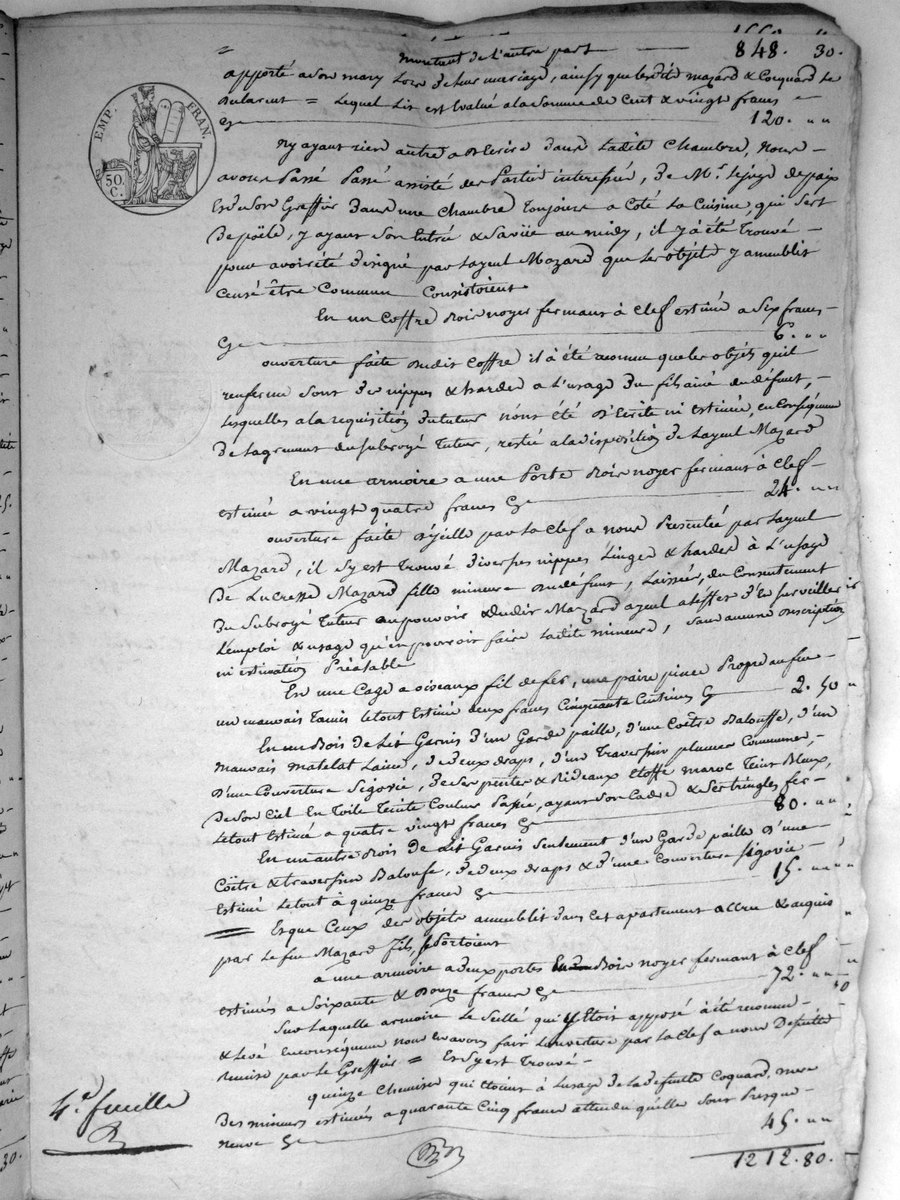 848. 30.
montant de l'autre part
apporté a son mary lors de leur mariage, ainsy que lesdits mazard & Cocquard le
= Lequel Lit est Evalué a la Somme de Cent & vingt francs
120. " "
EMP. FRAN.
50. C.
N'y ayant rien autre a Décrire dans ladite Chambre, nous
avons Passé Passé assisté des Parties interessées, de Mr. le juge de paix
et de Son Greffier dans une chambre toujours a Coté la Cuisine, qui sert
de poële, y ayant Son Entrée & Sa vüe au midy, il y a été trouvé
pour avoir été designé par Layeul Mazard que les objets y ameublit
censé être Commun Consistoient
En un Coffre Bois noyer fermant à Clef estimé a Six francs
6. " "
ouverture faite dudit Coffre il a été reconnu que les objets qu'il
renferme Sont des nippes & hardes a L'usage du fils ainé du défunt,
lesquelles a la requisition du tuteur n'ont été Décrite ni estimée, en Conséquence
de lagrement du Subrogé Tuteur, restée a la disposition de Layeul Mazard
En une armoire a une Porte Bois noyer fermant à Clef
estimée a vingt quatre francs
24. " "
ouverture faite D'icelle par la Clef a nous Presentée par Layeul
Mazard, il s'y est Trouvé diverses nippes Linges & hardes à L'usage
de Lucresse Mazard fille mineure du défunt, Laissées, du Consentement
du Subrogé Tuteur au pouvoir dudit Mazard ayeul a l'effet d'en surveiller
L'emploi & usage qu'en pourroit faire ladite mineure, Sans aucune description
ni estimation Préalable
En une Cage a oiseaux fil de fer, une paire pince Propre au feu
un mauvais Tamis le tout Estimé deux francs Cinquante Centimes
2. 50
En un Bois de Lit Garnis d'un Garde paille, d'une Coëtre Balouffe, d'un
mauvais matelat Laine, de deux draps, d'un Traversin plumes Communes,
D'une Couverture Segovie, de Ses pentes & Rideaux Etoffe maroc teint Bleux,
de Son Ciel En Toile teinte Couleur Passée, ayant Son Cadre & Ses tringles fer
le tout Estimé a quatre vingt francs
80. " "
En un autre Bois de Lit Garnis Seulement d'un Garde paille D'une
Coëtre & traversin Balouffe, de deux draps & d'une Couverture Segovie
Estimé le tout à quinze francs
15. " "
= Et que Ceux des objets ameublit dans Cet apartement accrue & acquis
par Le feu Mazard fils, se Portoient
a une armoire a deux portes Bois noyer fermant à Clef
estimée a Soixante & Douze francs
72. " "
Sur Laquelle armoire le Scellé qui y Etoit apposé a été reconnu
& Levé En conséquence nous en avons fait L'ouverture par la Clef a nous
remise par le Greffier = Et s'y est Trouvé
quinze Chemises qui étoient à L'usage de la deffunte Coquard, mere
Des mineurs estimées a quarante Cinq francs attendu qu'elle Sont Presque
neuve
45. " "
4.e feuille
1212. 80.